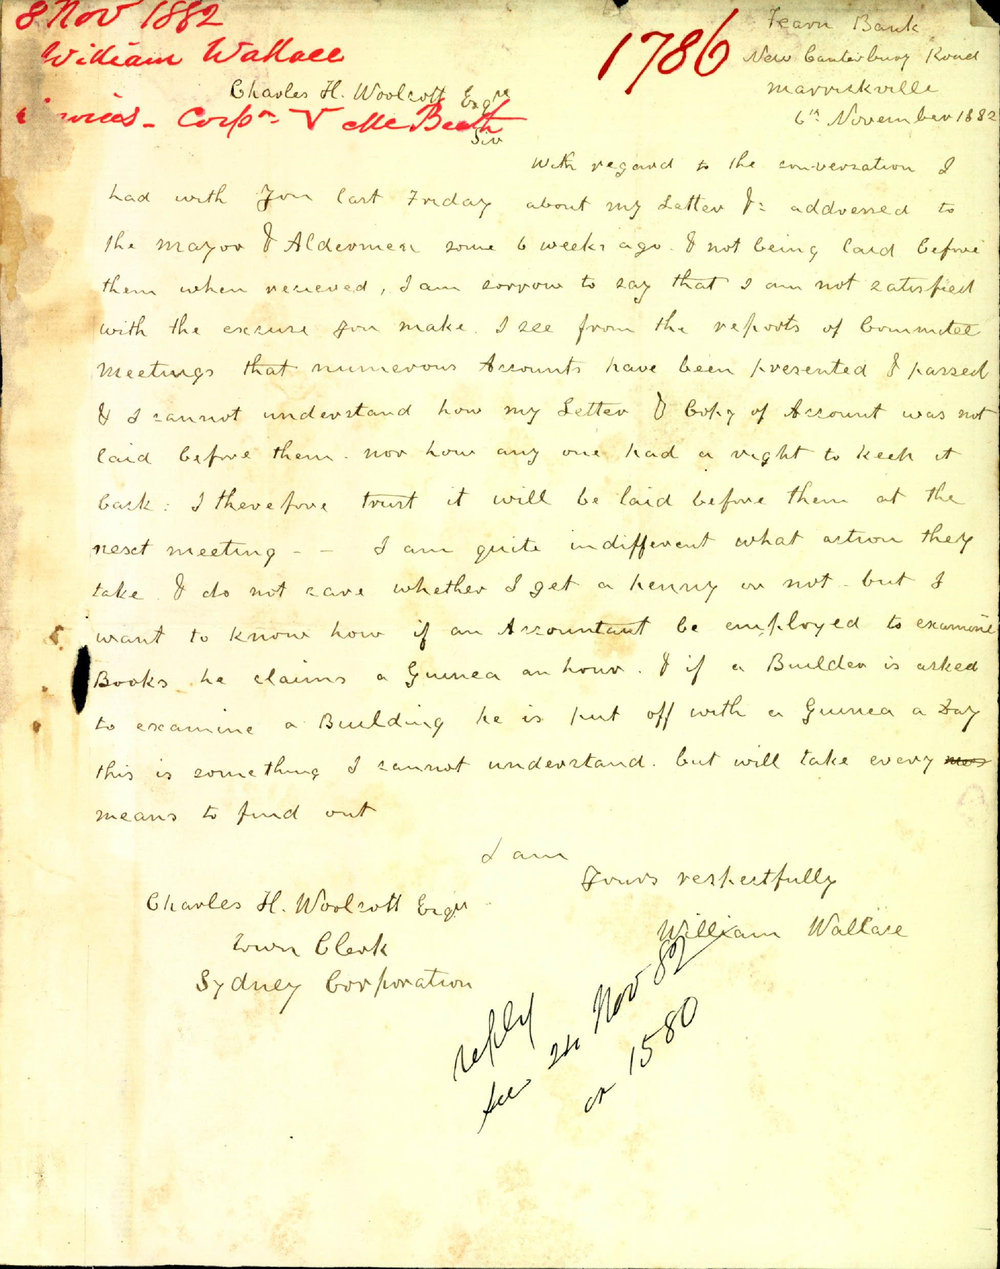 8 Nov 1882
William Wallace
1786
Fearn Bank
New Canterbury Road
Marrickville
6th November 1882
Charles H. Woolcott Esqre
Corpn V McBeath
Sir
With regard to the conversation I
had with You last Friday about my Letter &c addressed to
the Mayor & Aldermen some 6 weeks ago. & not being laid before
them when recieved, I am sorrow to say that I am not satisfied
with the excuse you make. I see from the reports of Committee
Meetings that numerous Accounts have been presented & passed
& I cannot understand how my Letter & Copy of Account was not
laid before them. nor how any one had a right to keep it
back: I therefore trust it will be laid before them at the
next meeting - - I am quite indifferent what action they
take. I do not care whether I get a penny or not - but I
want to know how if an Accountant be employed to examine
Books he claims a Guinea an hour. & if a Builder is asked
to examine a Building he is put off with a Guinea a Day
this is something I cannot understand. but will take every
means to find out
I am
Yours respectfully
William Wallace
Charles H. Woolcott Esqre
Town Clerk
Sydney Corporation
reply
see 24 Nov 82
on 1580